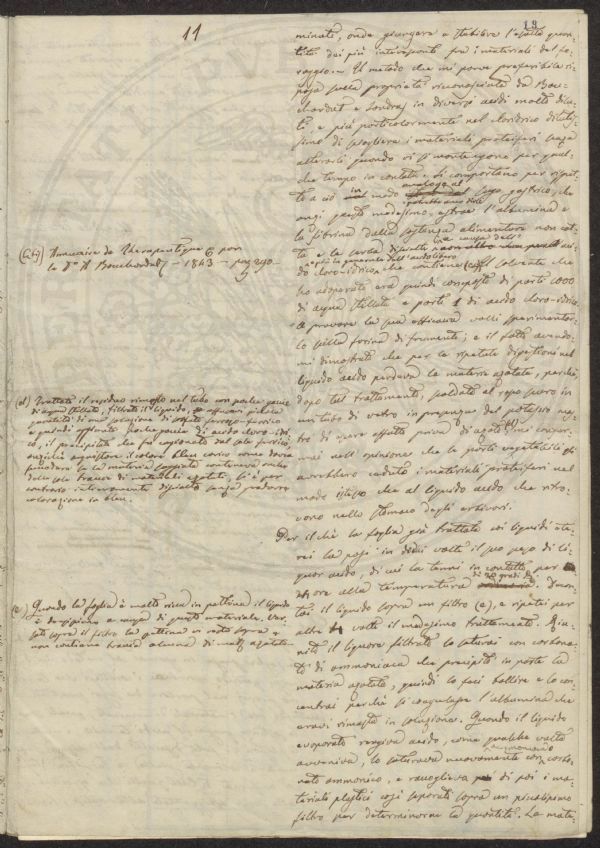 11
13
minato, onde giungere a stabilire l'esatta quan-
tità dei più interessanti fra i materiali del fo-
raggio. Il metodo che mi parve preferibile ri-
posa sulla proprietà riconosciuta da Bou-
chardat e Sandras in diversi acidi molto dilu-
ti, e più particolarmente nel cloridrico dilutis-
simo di sciogliere i materiali proteiferi senza
alterarli quando vi si mantengono per qual-
che tempo in contatto. Si comportano per rispet-
to a ciò in modo analogo al sugo gastrico, che
anzi questo medesimo, estrae l'albumina e
la fibrina dalla sostanza alimentare non cot-
ta e le
do cloro-idrico, che contiene. Il solvente che
ho adoperato era quindi composto di parti 1000
di acqua stillata e parti 1 di acido cloro-idrico.
A provare la sua efficacia volli sperimentar-
lo sulla farina di frumento; e il fatto avendo-
mi dimostrato che per le ripetute digestioni nel
liquido acido perdeva la materia azotata, perchè
dopo tal trattamento, scaldata al rosso scuro in
un tubo di vetro in presenza del potassio mo-
strò di essere affatto priva di azoto (d), mi confer-
mai nell'opinione che le parti vegetabili
avrebbero ceduto i materiali proteiferi nel
modo istesso che al liquido acido che ritro-
vano nello stomaco degli erbivori.
Per il chè la foglia già trattata coi liquidi ete-
rei la posi in dieci volte il suo peso di li-
quor acido, di cui la tenni in contatto per
ore alla temperatura di 20 gradi. Decan-
tai il liquido sopra un filtro (e), e ripetei per
altre 4 volte il medesimo trattamento. Riu-
nito il liquore filtrato lo saturai con carbona-
to di ammoniaca che precipitò in parte la
materia azotata, quindi lo feci bollire e lo con-
centrai perchè si coagulasse l'albumina che
eravi rimasta in soluzione. Quando il liquido
evaporato reagiva acido, come qualche volta
avveniva, lo saturava nuovamente con carbo-
nato ammonico, e raccoglieva poi i ma-
teriali plastici così separati sopra un piccolissimo
filtro per determinarne la quantità. La mate-
Annuaire de Thérapeutique par
le Dr A Bouchardat - 1843 -
(d) Trattato il residuo rimasto nel tubo con poche goccie
di acqua stillata, filtrato il liquido, e affusavi piccola
quantità di una soluzione di solfato ferroso-ferrico
e quindi aggiunto poche goccie di acido cloro-idri-
co, il precipitato che fu cagionato dal sale ferrico,
anzichè acquistare il colore bleu carico come dovea
succedere se la materia saggiata conteneva anche
delle sole traccie di materiali azotati, si è per
contrario interamente disciolto senza produrre
colorazione in bleu.
(e) Quando la foglia è molto ricca in pettina il liquido
è densissimo a cagione di questo materiale. Ver-
sato sopra il filtro la pettina vi resta sopra e
non contiene traccia alcuna di mat. azotata.